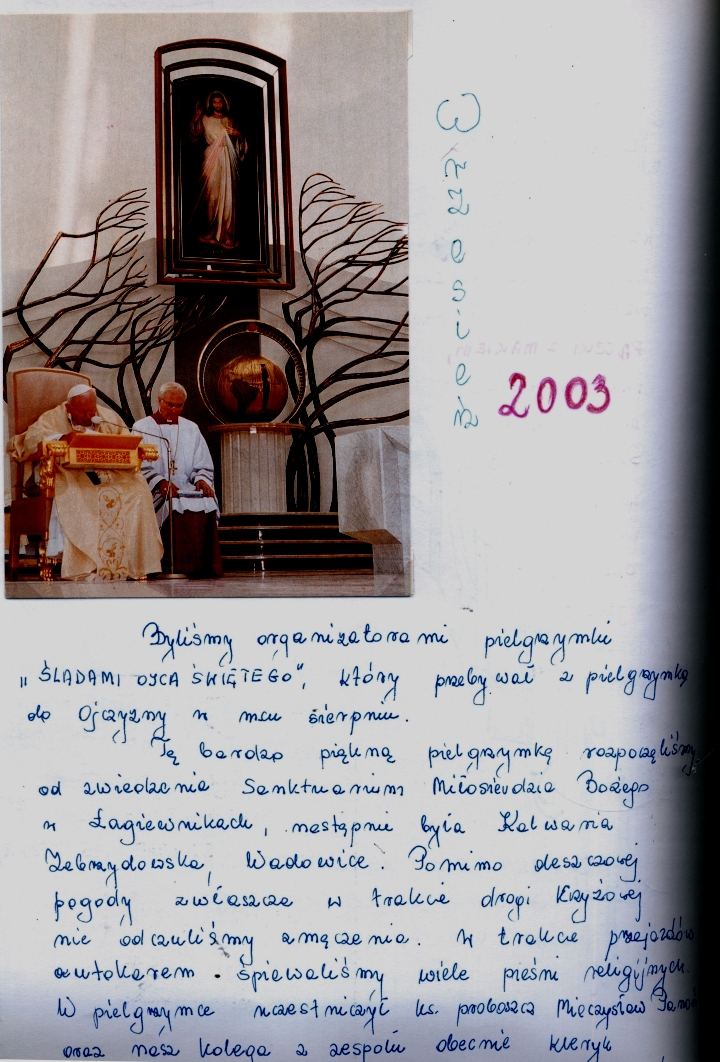 Wrzesień
2003
Byliśmy organizatorami pielgrzymki
„ŚLADAMI OJCA ŚWIĘTEGO", który przebywał z pielgrzymką
do Ojczyzny w mcu sierpniu.
Tę bardzo piękną pielgrzymkę rozpoczęliśmy
od zwiedzenia Sanktuarium Miłosierdzia Bożego
w Łagiewnikach, następnie była Kalwaria
Zebrzydowska, Wadowice. Pomimo deszczowej
pogody zwłaszcza w trakcie drogi Krzyżowej
nie odczuliśmy zmęczenia. W trakcie przejazdów
autokarem śpiewaliśmy wiele pieśni religijnych.
W pielgrzymce uczestniczył ks. proboszcz Mieczysław
oraz nasz kolega z zespołu obecnie kleryk